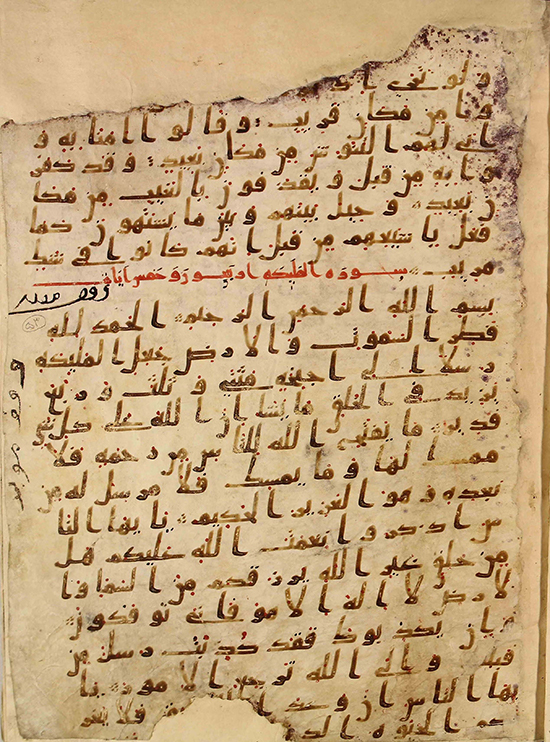 ولو ترى ا
وا من مكان قريب وقالوا امنا به و
انى لهم التنوش من مكان بعيد وقد كفر
وا به من قبل ويقذفون بالغيب من مكا
ن بعيد وحيل بينهم وبين ما يشتهون كما
فعل باشيعهم من قبل انهم كانوا في شك
مريب سورة الملئكة اربعون وخمس ايات
بسم الله الرحمن الرحيم الحمد لله
فطر السموت والارض جعل الملئكة
رسلا اولى اجنحة مثنى وثلث وربع
يزيد في الخلق ما يشا ان الله على كل شي
قدير ما يفتح الله للناس من رحمة فلا
ممسك لها وما يمسك فلا مرسل له من
بعده وهو العزيز الحكيم يايها النا
س اذكروا نعمت الله عليكم هل
من خلق غير الله يرزقكم من السما وا
لارض لا اله الا هو فانى توفكون
وان يكذبوك فقد كذبت رسل من
قبلك والى الله ترجع الامور يا
يها الناس ان وعد حق فلا تغر
نكم الحيوة الد